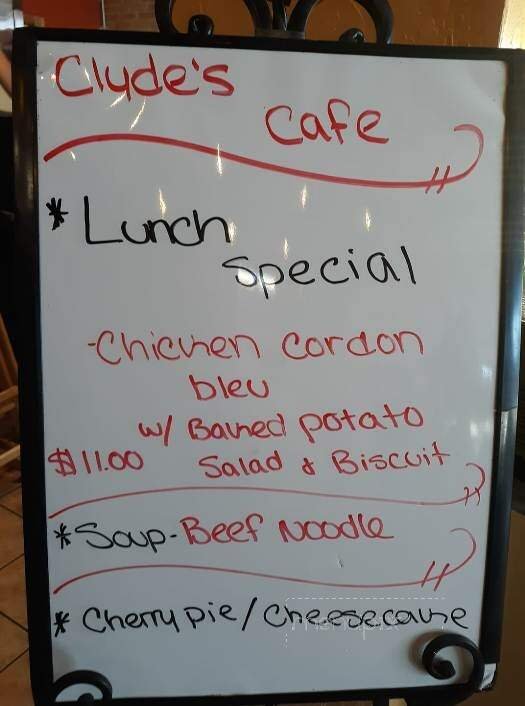 Clyde's
Cafe
* Lunch
Special
-Chicken Cordon
bleu
w/ Baked potato
$11.00 Salad & Biscuit
* Soup-Beef Noodle
* Cherry pie/Cheesecake